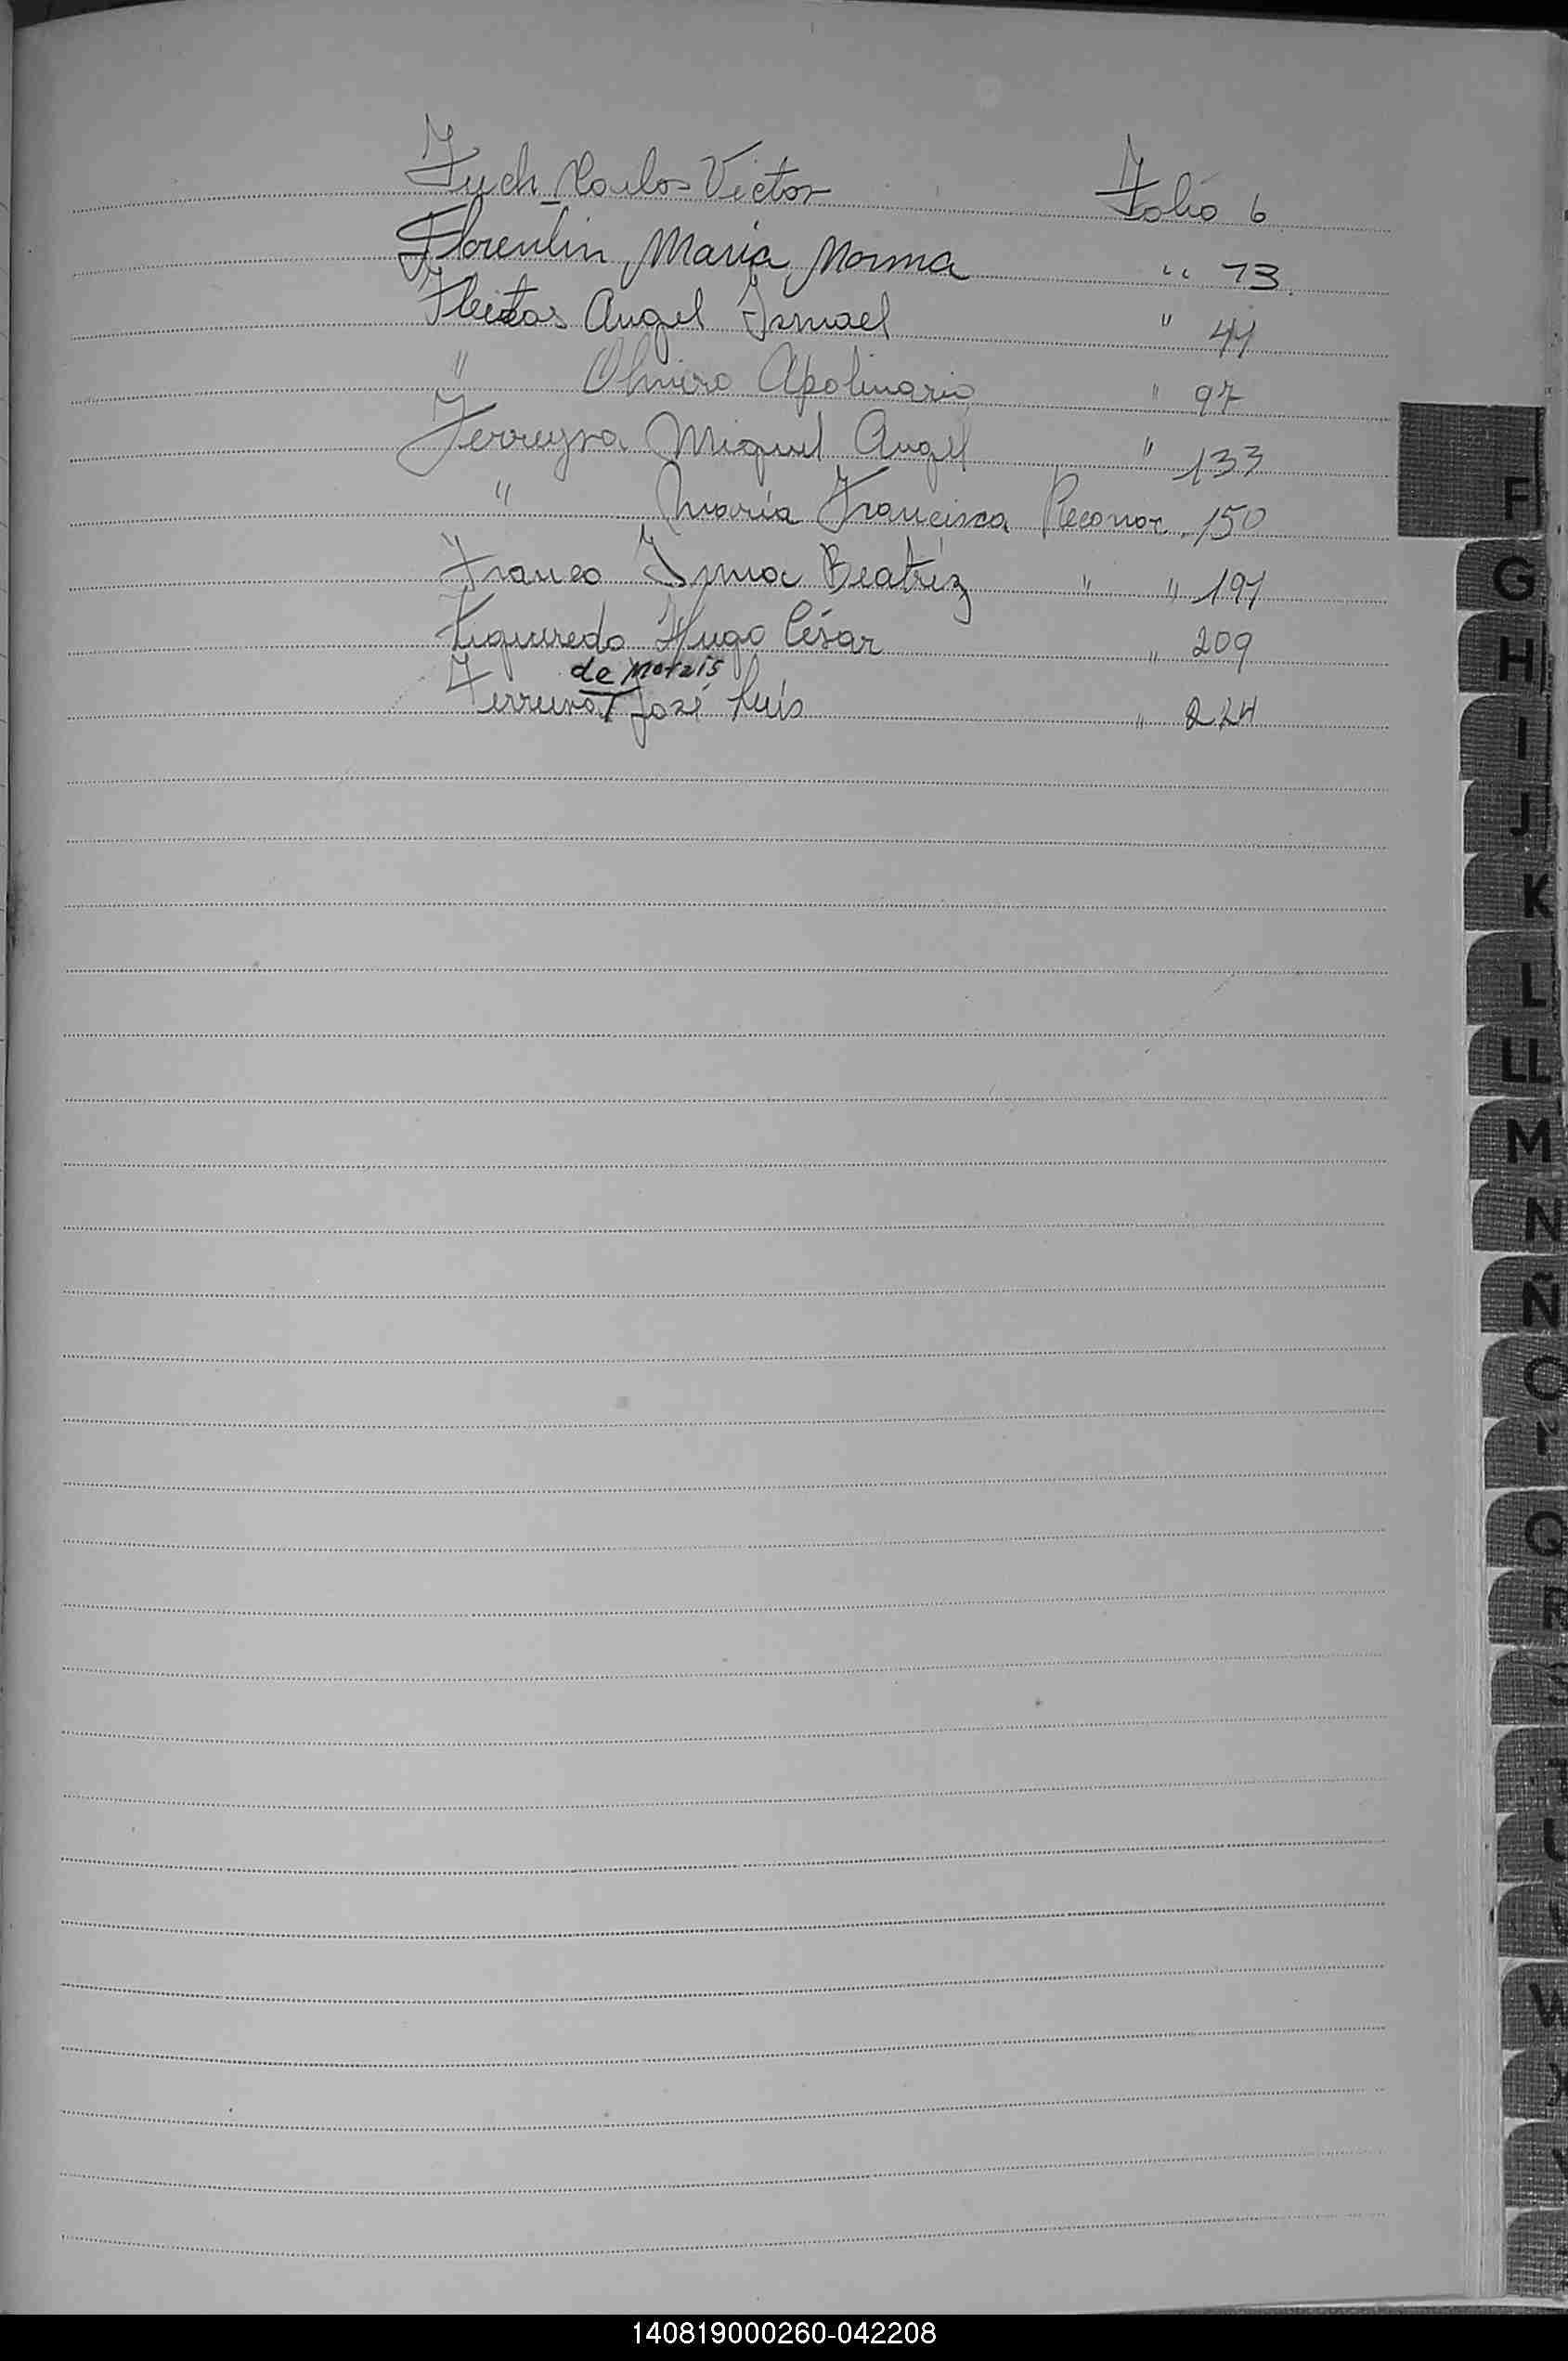 Fuch Carlos Victor Folio 6
Florentin María Norma " 13.
Fleitas Angel Ismael " 44
" Olmiro Apolinario " 97
Ferreyra Miguel Angel " 133
" María Francisca 150
Franco Irma Beatríz " " 191
Figueredo Hugo César " 209
de Morais
Ferreira José Luís " 224
F
G
H
I
J
K
L
LL
M
N
Ñ
O
Q
R
U
W
140819000260-042208